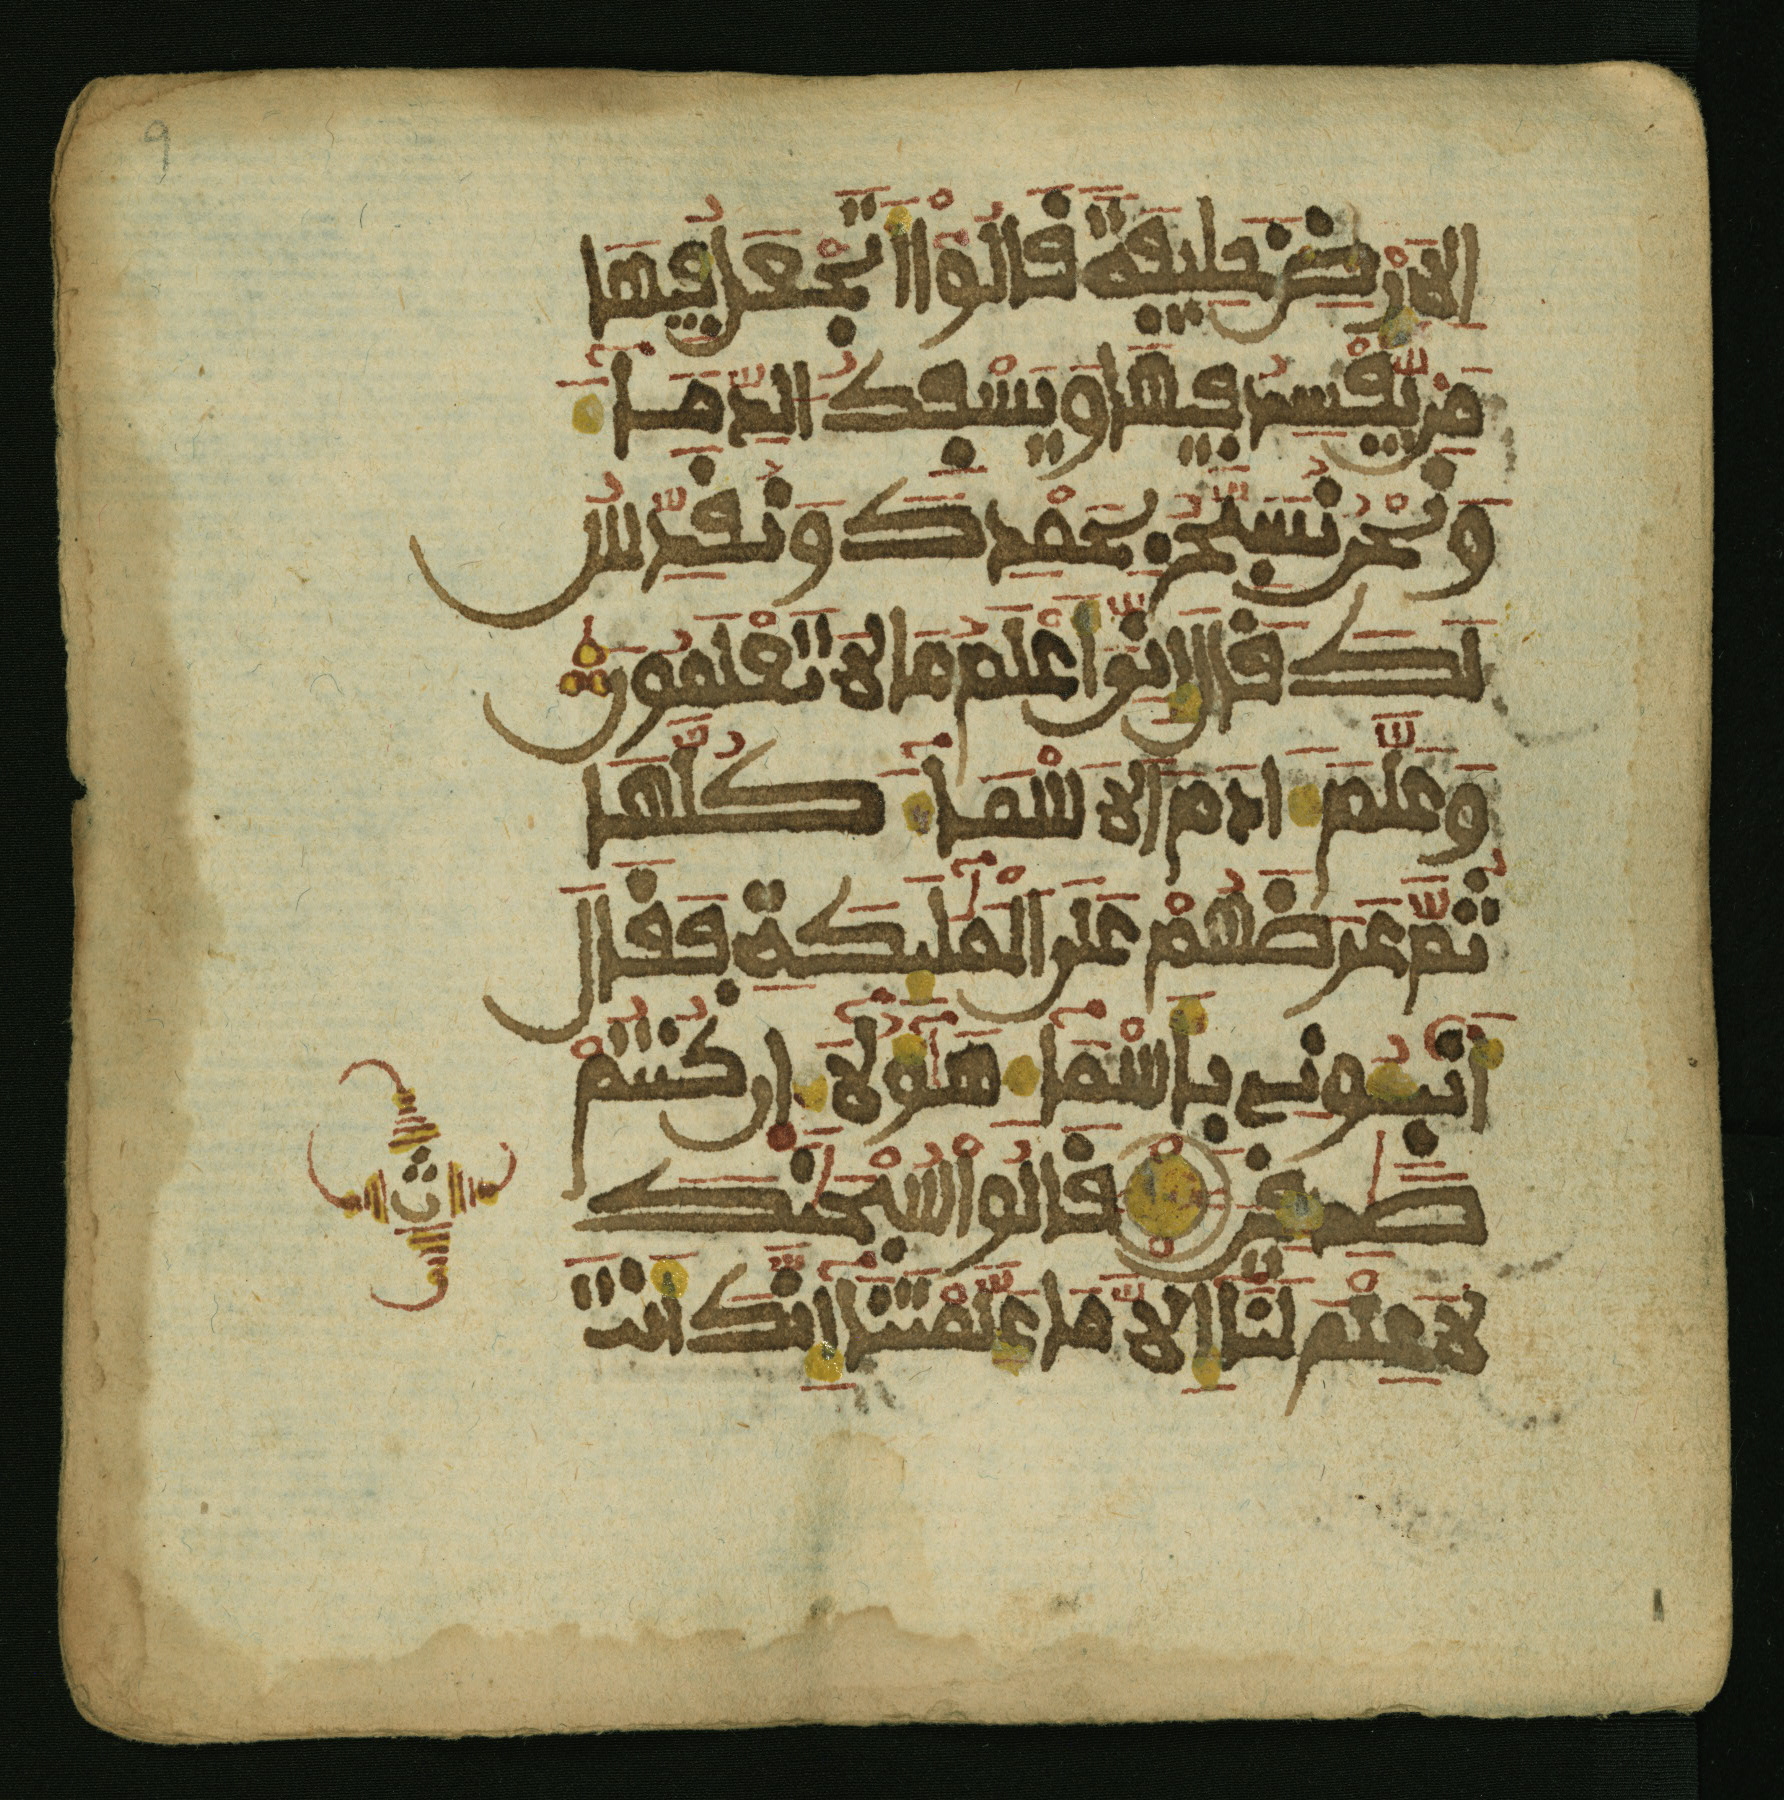 9
الارْضِ خَلِيفَةً قَالُوٓا اَتَجْعَلُ فِيهَا
مَنْ يُّفْسِدُ فِيهَا وَيَسْفِكُ الدِّمَآءَ
وَنَحْنُ نُسَبِّحُ بِحَمْدِكَ وَنُقَدِّسُ
لَكَ قَالَ اِنِّيَ أَعْلَمُ مَا لَا تَعْلَمُونَ
وَعَلَّمَ ءَادَمَ الَاسْمَآءَ كُلَّهَا
ثُمَّ عَرَضَهُمْ عَلَى الْمَلَٰٓئِكَةِ فَقَالَ
أَنۢبِـُٔونِے بِأَسْمَآءِ هَٰٓؤُلَآءِ اِن كُنتُمْ
صَٰدِقِينَ قَالُوا سُبْحَٰنَكَ
لَا عِلْمَ لَنَآ إِلَّا مَا عَلَّمْتَنَآ إِنَّكَ أَنتَ